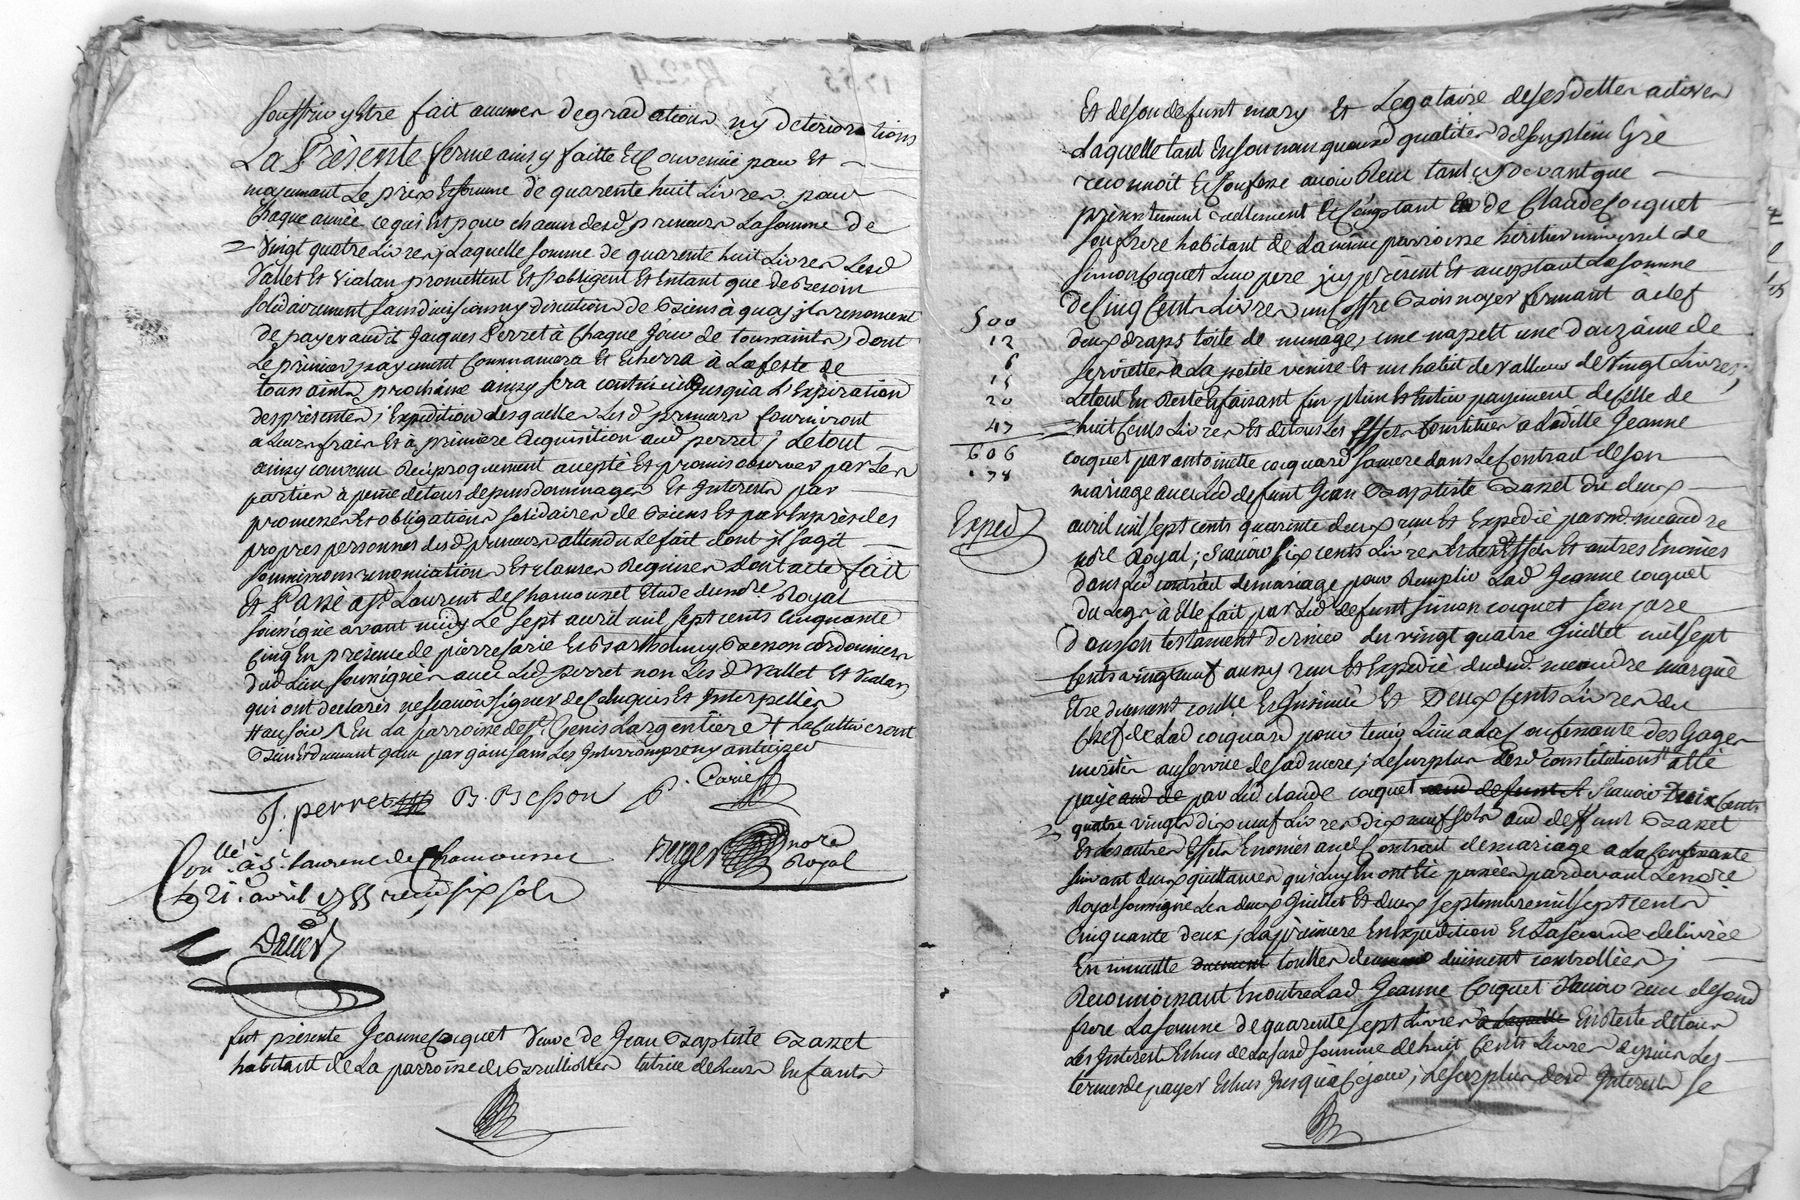 souffrir y Estre fait aucunes degradations ny deteriorations
La Présente ferme ainsy faitte Et Convenüe pour Et
moyennant Le prix Et somme de quarente huit Livres pour
Chaque année ce qui Est pour chacun desd preneurs La somme de
vingt quatre Livres, Laquelle somme de quarente huit Livres Lesd
Vallet Et Vialan promettent Et s'obligent Et Entant que de Besoin
solidairement sans division ny discution de Biens à quoy ils renoncent
de payer audt Jacques Perret à Chaque Jour de toussaints, dont
Le premier payement Commancera Et Echerra à La feste de
toussaints prochaine ainsy sera continué Jusqu'à L'Expiration
des présentes; Expedition desquelles Lesd preneurs fourniront
a Leurs frais Et à premiere Requisition aud perret; Le tout
ainsy convenu Reciproquement accepté Et promis observer par Les
parties à peine de tous depens dommages Et Interests par
promesses Et obligations solidaires de Biens Et par Exprès des
propres personnes desd preneurs attendu Le fait dont s'agit
soumissions renonciations Et clauses Requises dont acte fait
Et Passé a St Laurent de Chamousset Etude du nore Royal
soussigné avant midy Le sept avril mil sept cents Cinquante
Cinq En presence de pierre Carie Et Barthelemy Besson cordonniers
dud Lieu soussignés avec Led perret non Lesd Vallet Et Vialan
qui ont declarés ne scavoir signer de Ce Enquis Et Interpellés
En La parroisse de St Genis Largentiere + La cultiveront
Bien Et duement sans Les Interrompre ny anticiper
J. perret B. Besson P. Carie
Berger nore
Royal
Conllé à St Laurent de Chamousset
Le 21e avril 1755 reçu six sols
fut présente Jeanne Coquet Veuve de Jean Baptiste Bazet
habitante de La parroisse de Brullioles tutrice de Leurs Enfants
Et de son defunt mary Et Legataire de ses dettes actives
Laquelle tant En son nom qu'aux qualités de son plein Gré
reconnoit Et Confesse avoir Reçu tant cy devant que
présentement réellement Et Comptant de Claude Coquet
son frere habitant de La même parroisse héritier universel de
Simon Coquet Leur pere icy présent Et acceptant La somme
de Cinq Cents Livres un Coffre Bois noyer fermant a clef
deux draps toile de menage, une nape Et une douzaine de
serviettes a La petite venise Et un habit de valleur de vingt Livres;
500
12
6
15
20
47
606
Le tout En Reste Et faisant fin plein Et Entier payement de Celle de
huit Cents Livres Et de tous Les Effets Constitués a Ladite Jeanne
coquet par antoinette coquard sa mere dans Le Contrat de son
mariage avec Led defunt Jean Baptiste Bazet du deux
Exped
avril mil sept cents quarente deux reçu Et Expedié par me meandre
nore Royal; Scavoir six cents Livres Et Les Effets Et autres Enoncés
dans Led contrat de mariage pour Remplir Lad Jeanne coquet
du Legs à Elle fait par Led defunt Simon coquet son pere
dans son testament dernier du vingt quatre Juillet mil sept
Cents vingt neuf aussy reçu Et Expedié dud me meandre marqué
Etre duement conllé Et Insinué Et Deux Cents Livres du
Chef de Lad coquard pour tenir Lieu a La Confessante des Gages
merités au service de sad mere; Le surplus desd constitutions a Eté
payé par Led claude coquet Scavoir Deux Cents
quatre vingts dix neuf Livres dix neuf sols aud deffunt Bazet
Et Les autres Effets Enoncés aud Contrat de mariage a La Confessante
suivant deux quittances qui Luy En ont Eté passées par devant Le nore
Royal soussigné Les deux Juillet Et deux septembre mil sept cents
Cinquante deux, La premiere En Expedition Et La seconde delivrée
En minutte toutes deux düement controllées;
Reconnoissant En outre Lad Jeanne Coquet d'avoir reçu de sond
frere La somme de quarente sept Livres En Reste de tous
Les Interest Echus de La susd somme de huit Cents Livres depuis Les
termes de payer Echus Jusqu'à Ce Jour; Le surplus desd Interests Se